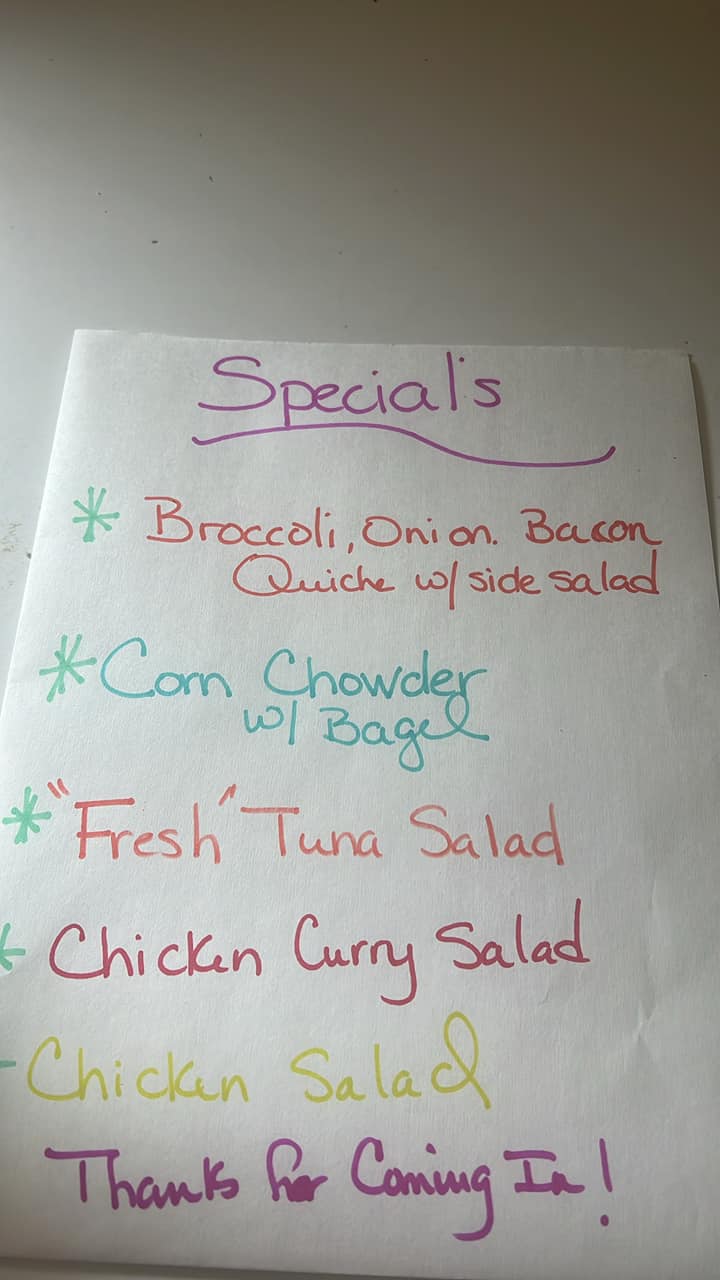 Special's
* Broccoli, Onion. Bacon
Quiche w/ side salad
* Corn Chowder
w/ Bagel
* "Fresh" Tuna Salad
* Chicken Curry Salad
* Chicken Salad
Thanks for Coming In!